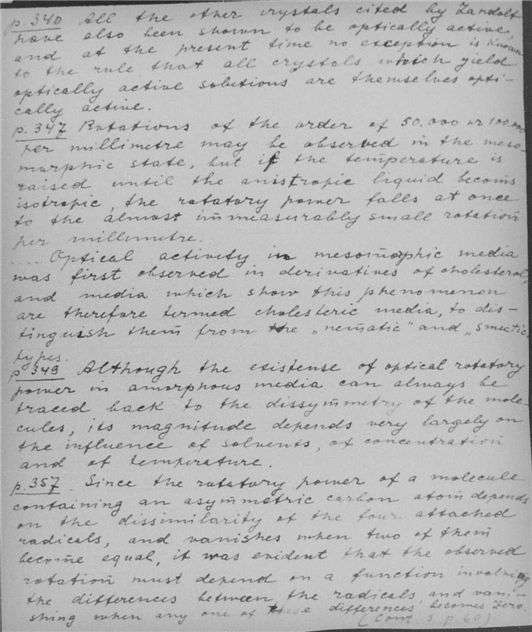 p. 340 All the other crystals cited by Landolt
have also been shown to be optically active,
and at the present time no exception is known
to the rule that all crystals which yield
optically active solutions are themselves opti-
cally active.
p. 347 Rotations of the order of 50,000 or 100,000
per millimetre may be observed in the meso-
morphic state, but if the temperature is
raised until the anistropic liquid becoms
isotropic, the rotatory power falls at once
to the almost immeasurably small rotation
per millimetre.
.... Optical activity in mesomophic media
was first observed in derivatives of cholesterol,
and media which show this phenomenon
are therefore termed cholesteric media, to dis-
tinguish them from the „nematic" and „smectic„
types.
p. 349 Although the existense of optical rotatory
power in amorphous media can always be
traced back to the dissymmetry of the mole-
cules, its magnitude depends very largely on
the influence of solvents, of concentration
and of temperature.
p. 357. Since the rotatory power of a molecule
containing an asymmetric carbon atom depends
on the dissimilarity of the four attached
radicals, and vanishes when two of them
become equal, it was evident that the observed
rotation must depend on a function involving
the differences between the radicals and vani-
shing when any one of these differences becomes zero.
(Cont. s. p. 60)